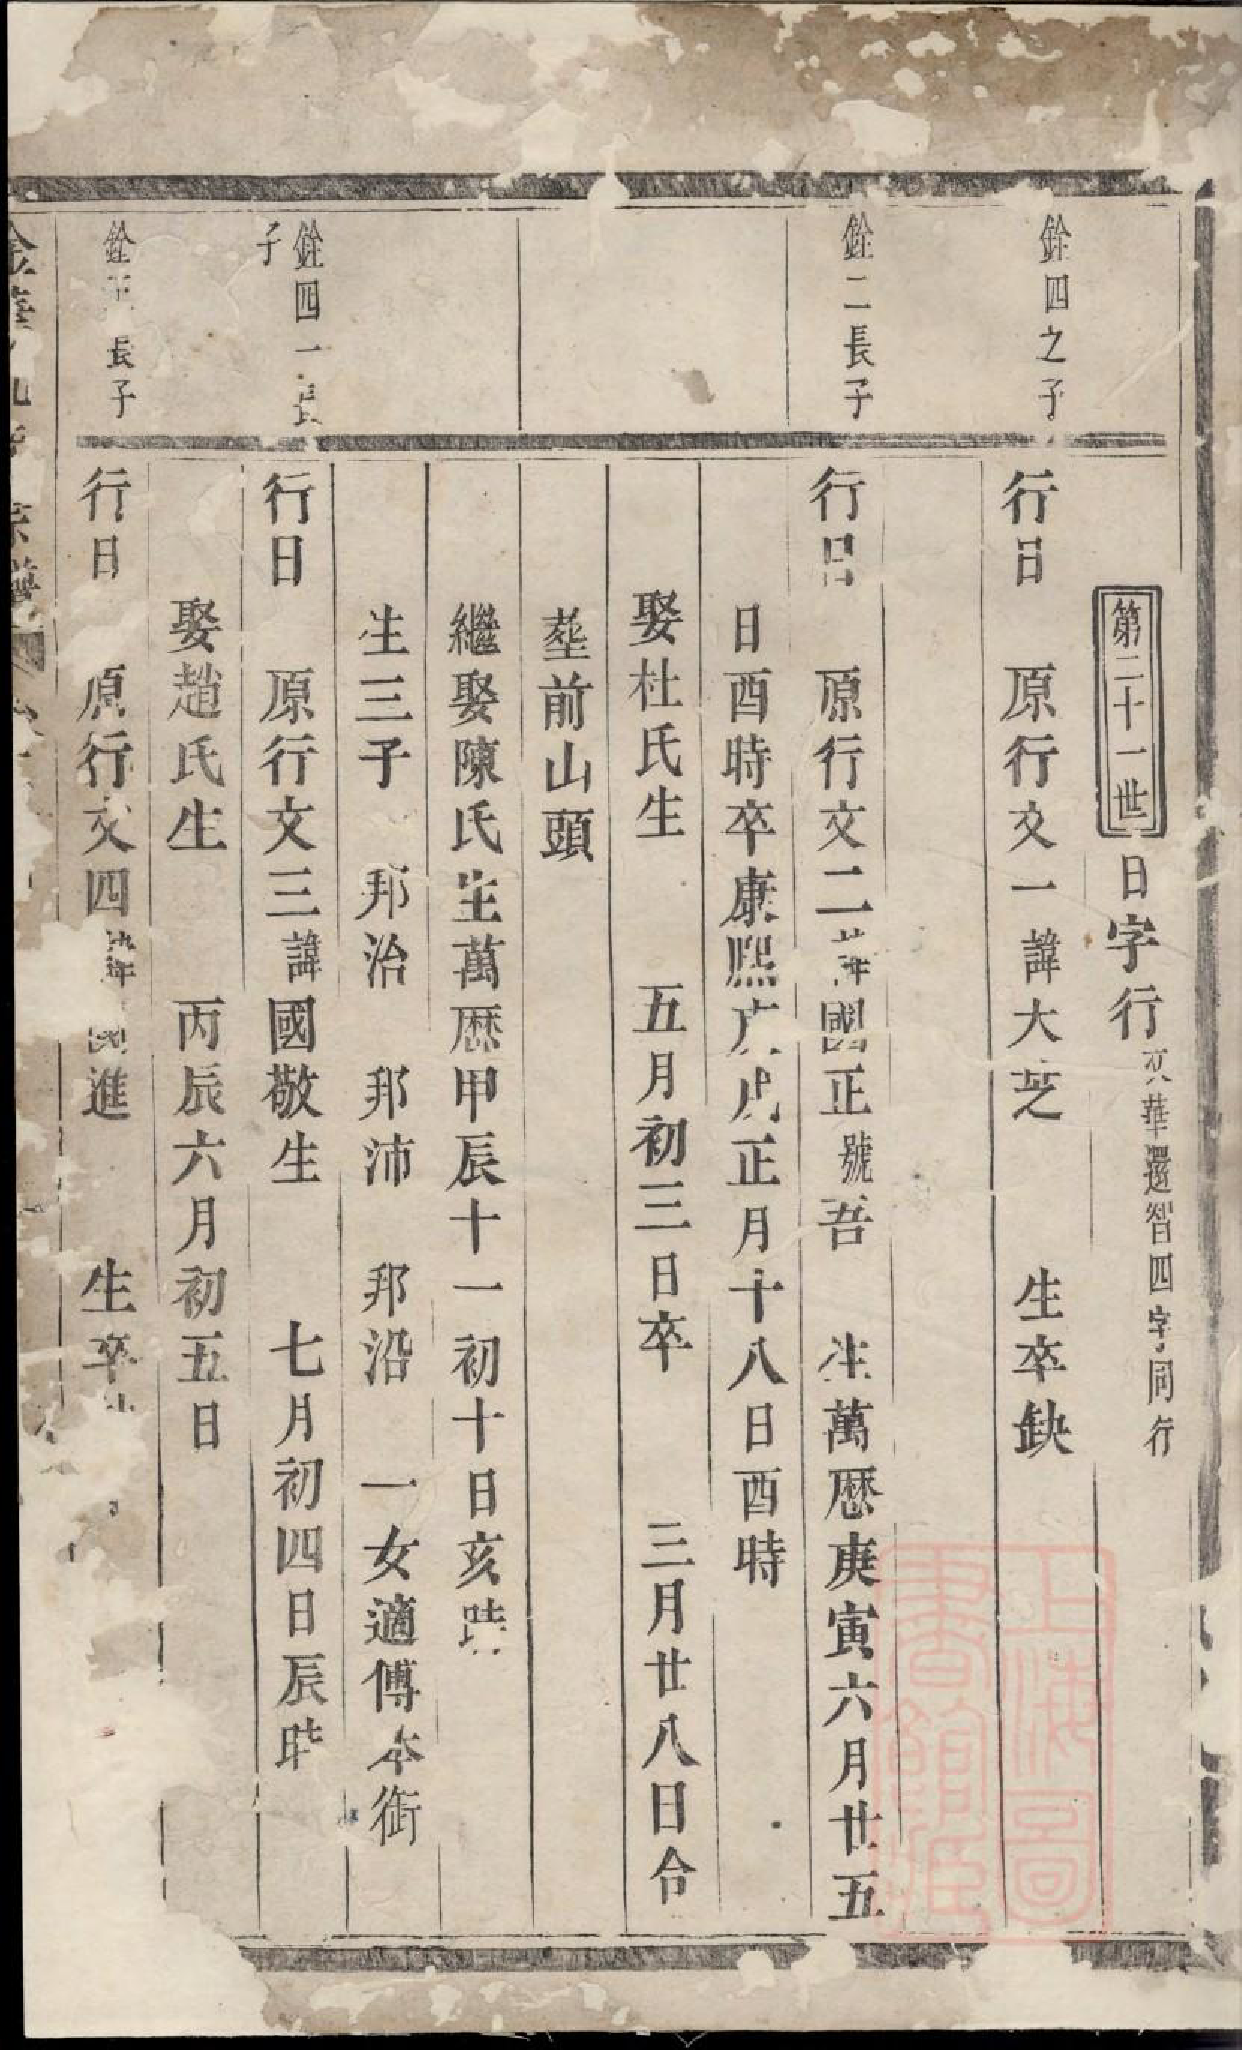 第二十一世 日字行 文華還智四字同行
銓四之子
行日 原行文一諱大芝 生卒缺
銓二長子
行日 原行文二諱國正號吾 生萬厯庚寅六月廿五
日酉時卒康熙庚戌正月十八日酉時
娶杜氏生 五月初三日卒 三月廿八日合
塟前山頭
繼娶陳氏生萬厯甲辰十一初十日亥時
生三子 邦治 邦沛 邦沿 一女適傅本銜
銓四一長
子
行日 原行文三諱國敬生 七月初四日辰時
娶趙氏生 丙辰六月初五日
銓 長子
行日 原行文四諱國進 生卒
金華 宗譜
上海圖
書館藏